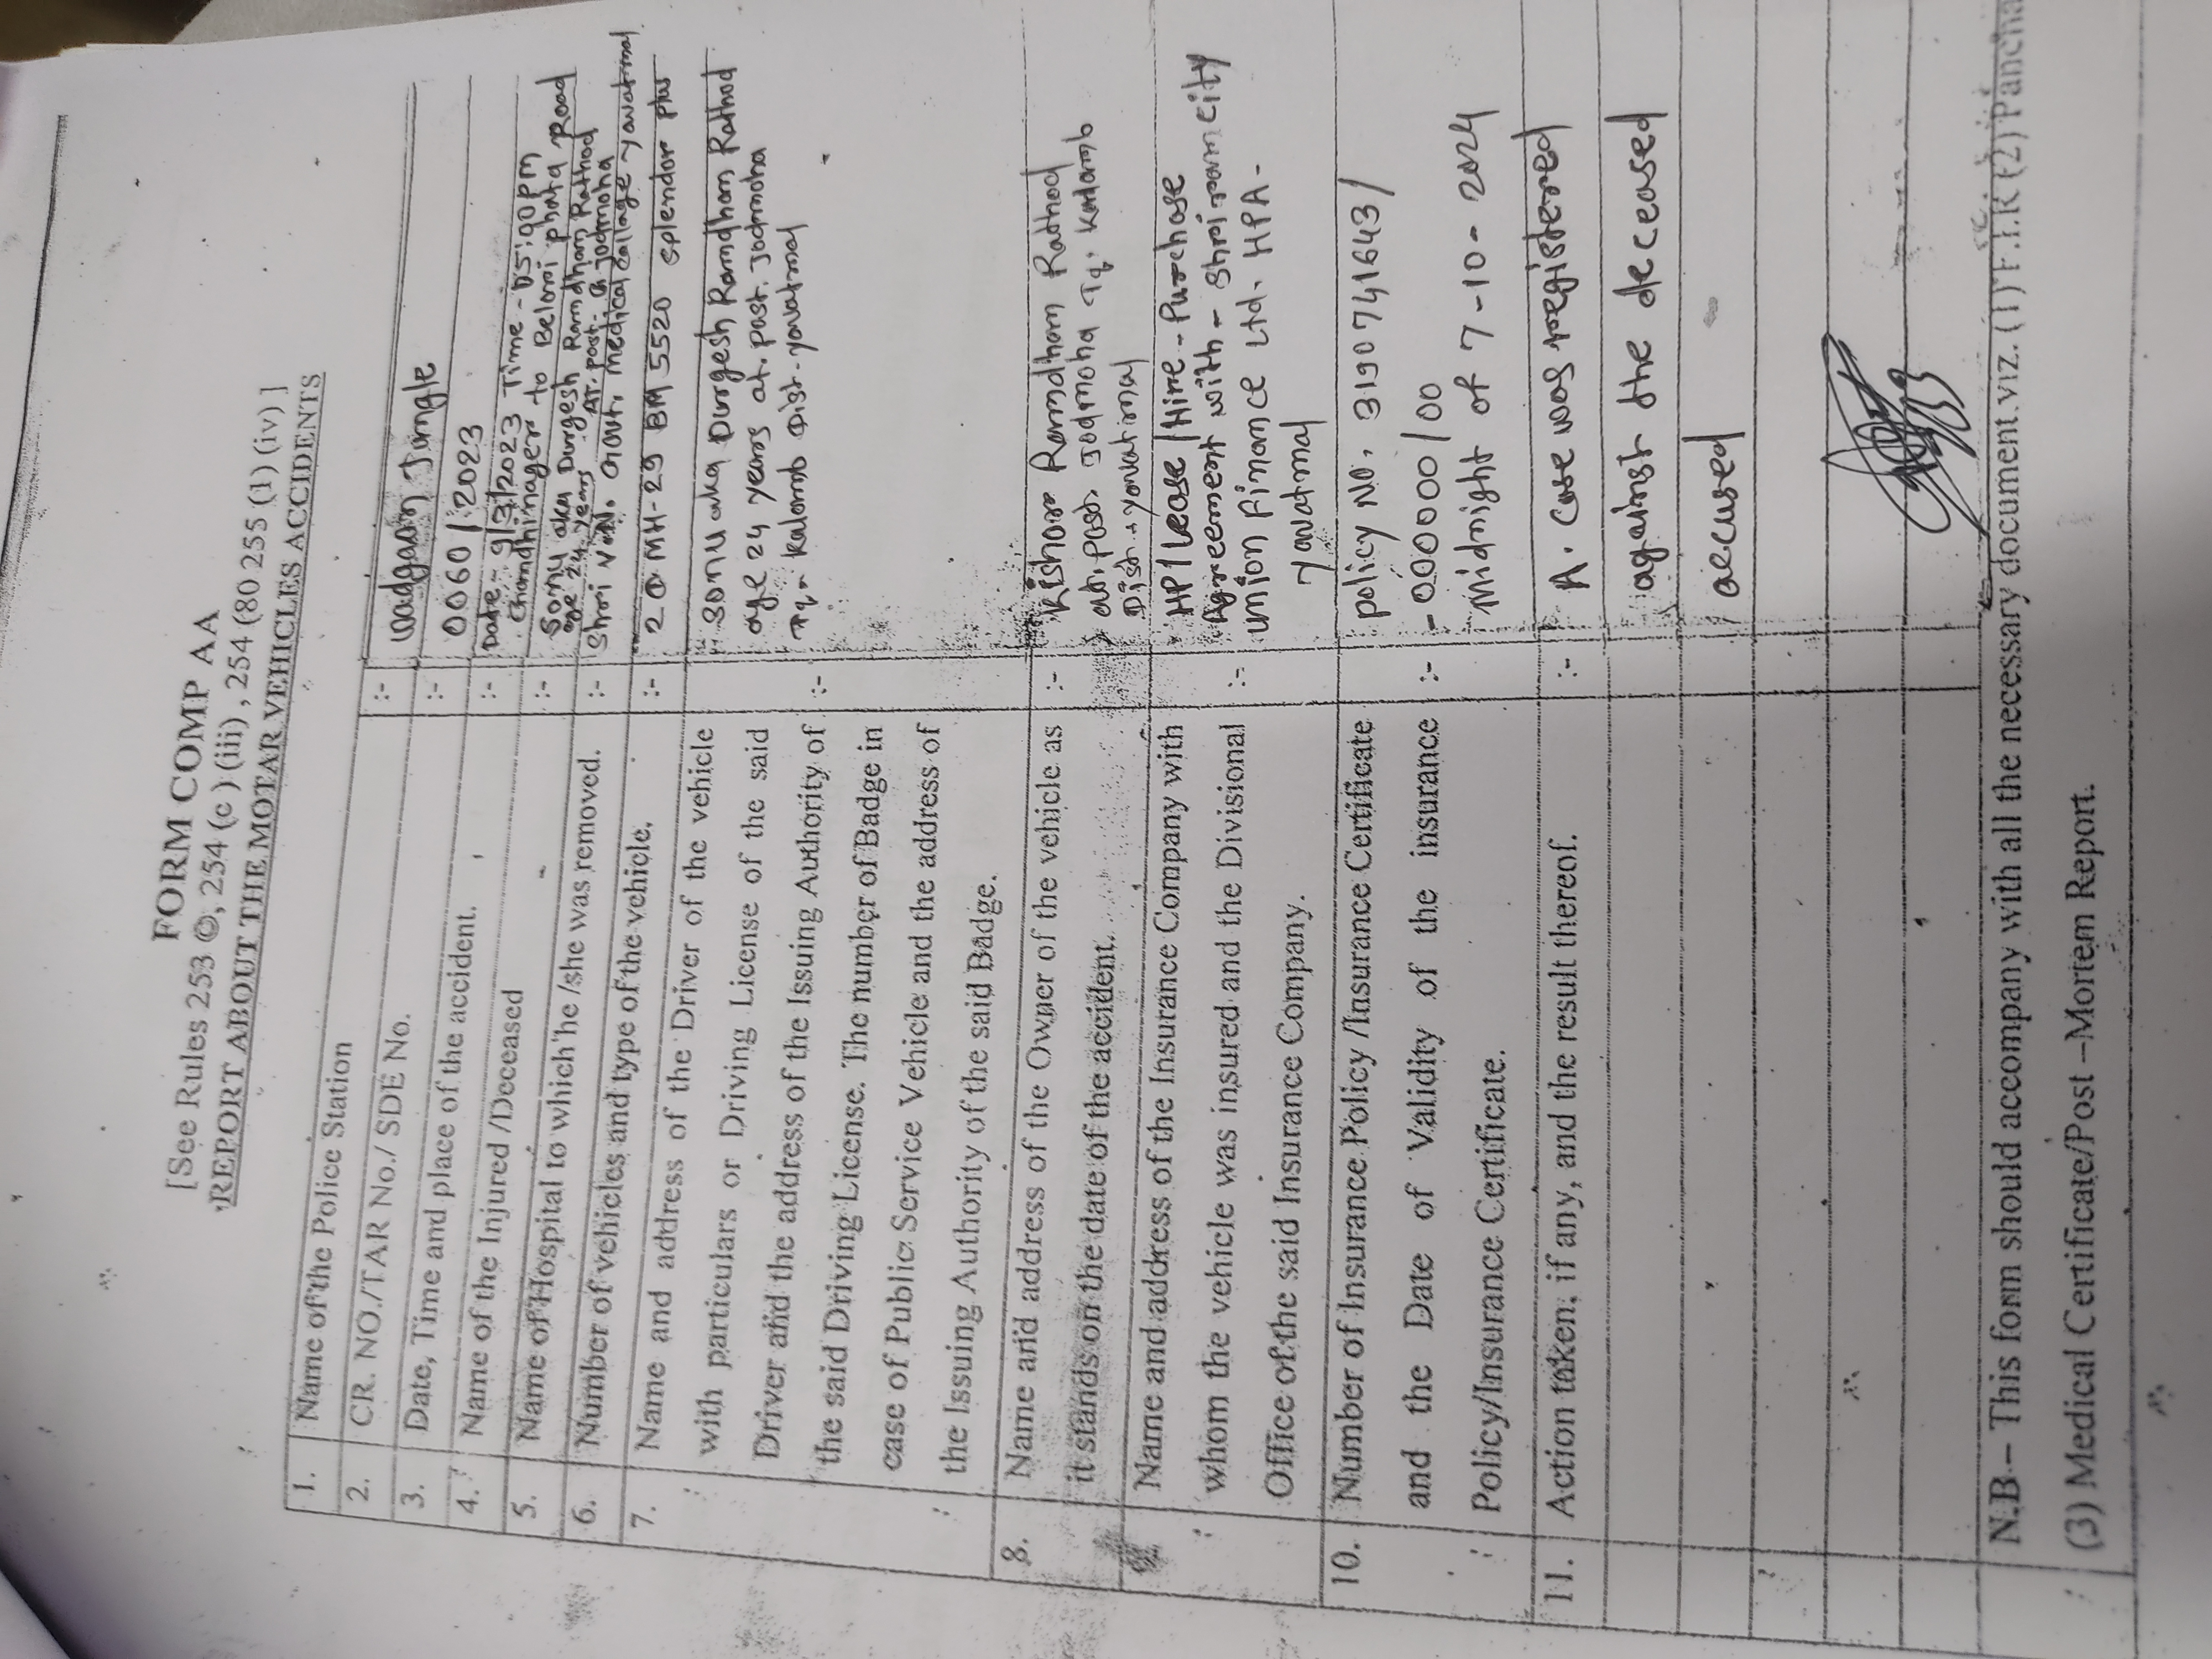 FORM COMP AA
[See Rules 253 ©, 254 (c ) (iii) , 254 (80 255 (1) (iv) ]
REPORT ABOUT THE MOTAR VEHICLES ACCIDENTS
1. Name of the Police Station :- Wadgaon Jungle
2. CR. NO./TAR No./ SDE No. :- 0060 / 2023
3. Date, Time and place of the accident. :- Date - 9/3/2023 Time - 05:00 pm
Chandhinager to Beloni phata Road
4. Name of the Injured /Deceased :- Sonu aka Durgesh Ramdham Rathod
age 24 years At. post. Jodmoha
5. Name of Hospital to which he /she was removed. :- Shri V.N. Govt. medical collage yavatmal
6. Number of vehicles and type of the vehicle. :- MH-29 BM 5520 splendor plus
7. Name and address of the Driver of the vehicle :- Sonu aka Durgesh Ramdham Rathod
with particulars or Driving License of the said age 24 years at. post. Jodmoha
Driver and the address of the Issuing Authority of Tq. Kalamb Dist- yavatmal
the said Driving License. The number of Badge in
case of Public Service Vehicle and the address of
the Issuing Authority of the said Badge.
8. Name and address of the Owner of the vehicle as :- Kishor Ramdham Rathod
it stands on the date of the accident. at. Post. Jodmoha Tq. Kalamb
Dist - yavatmal
Name and address of the Insurance Company with HP/Lease/Hire-Purchase
whom the vehicle was insured and the Divisional :- Agreement with - Shriram city
Office of the said Insurance Company. union Finance Ltd. HPA-
yavatmal
10. Number of Insurance Policy /Insurance Certificate policy No. 3190741643/
and the Date of Validity of the insurance :- -000000/00
Policy/Insurance Certificate. midnight of 7-10-2024
11. Action taken, if any, and the result thereof. :- A. case was registered
against the deceased
accused
N.B – This form should accompany with all the necessary document viz. (1) F.I.R (2) Panchna
(3) Medical Certificate/Post –Mortem Report.